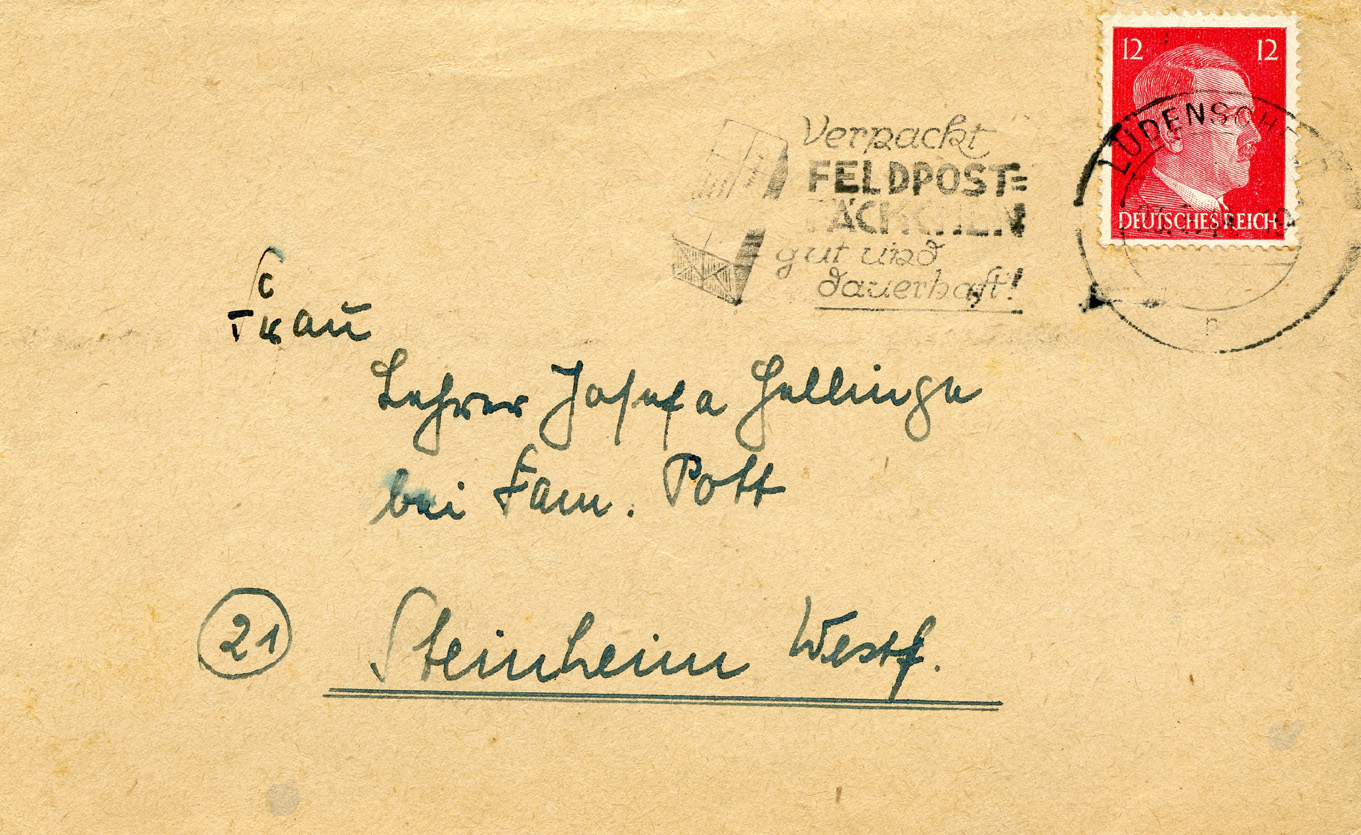 12 12
DEUTSCHES REICH
Verpackt
FELDPOST=
PÄCKCHEN
gut und
dauerhaft!
Frau
Lehrer Josefa Hellinge
bei Fam. Pott
21 Steinheim Westf.